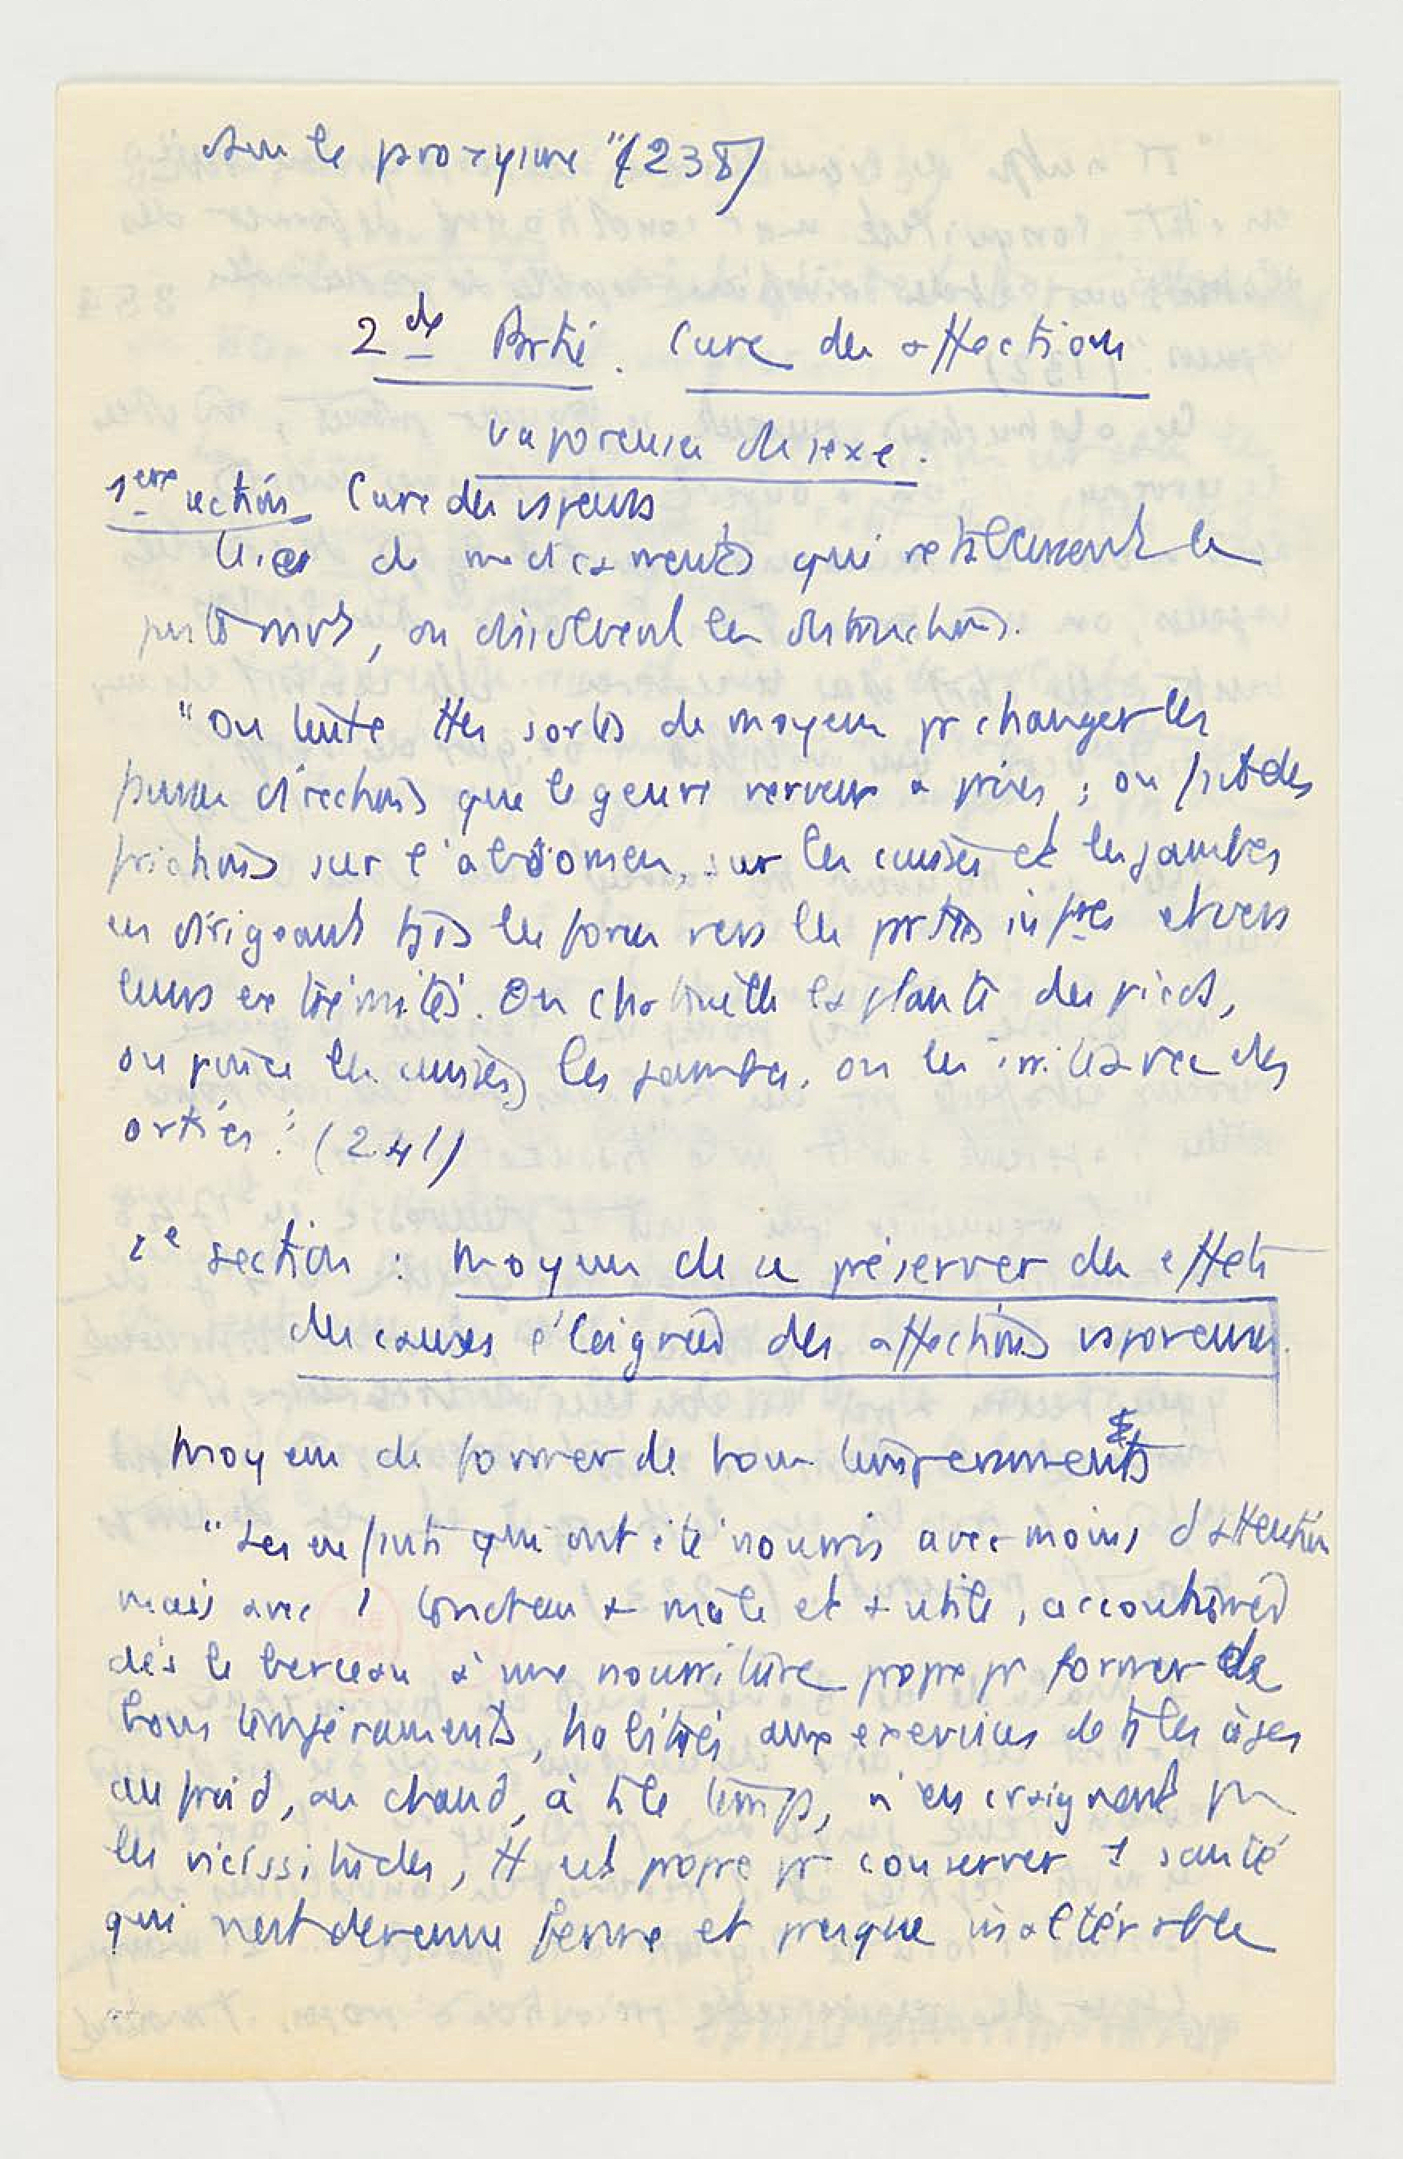 dans le paroxysme" (238)
2de Partie. Cure des affections
vaporeuses du sexe.
1ere section Cure des vapeurs
de medicaments qui rétablissent le
, ou dissolvent les obstructions.
"On tente ttes sortes de moyens pr changer les
fausses directions que le genre nerveux a prises ; on fait des
frictions sur l'abdomen, sur les cuisses et les jambes
en dirigeant tjs les forces vers les parties infres et vers
leurs extrémités. On chatouille la plante des pieds,
on pince les cuisses, les jambes, on les irrite avec des
orties." (241)
2e section : Moyens de se préserver des effets
des causes éloignées des affections vaporeuses.
Moyens de former de bons tempéraments
"Les enfants qui ont été nourris avec moins d'attention
mais avec 1 conduite + mâle et + utile, accoutumés
dès le berceau à une nourriture propre pr former de
bons tempéraments, habitués aux exercices de ts les âges
au froid, au chaud, à tt le temps, n'en craignent pas
les vicissitudes, tt est propre pr conserver 1 santé
qui n'est devenue ferme et presque inaltérable